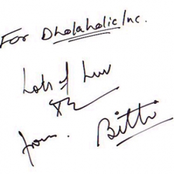 For Dholaholic Inc.
Lots of Luv
from.
Bitti